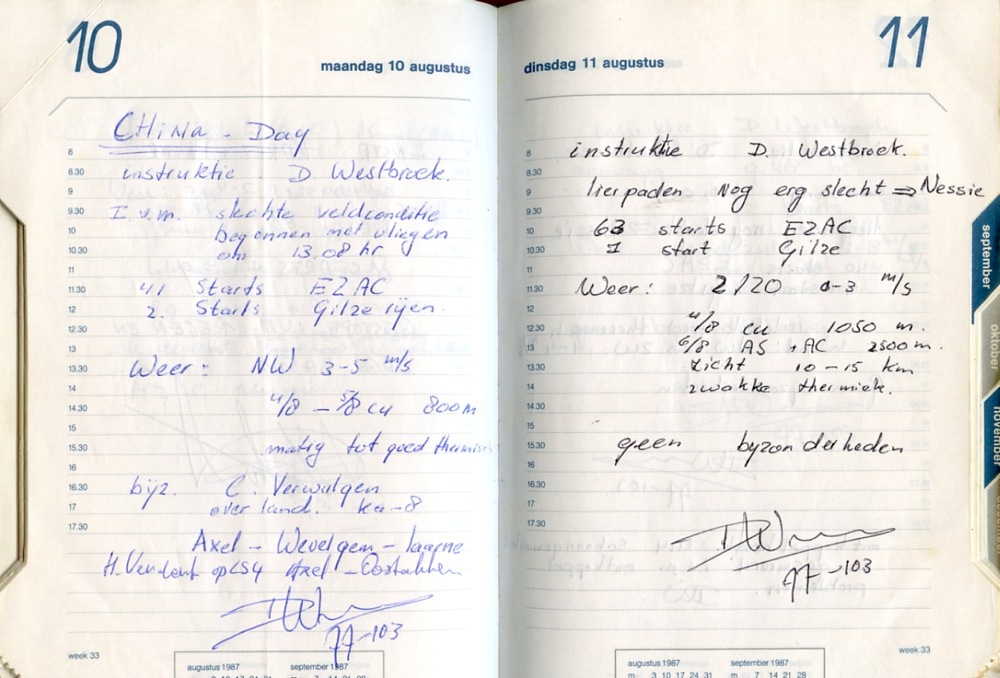 10
maandag 10 augustus
CHINA - Day
8
8.30 instruktie D Westbroek.
9
9.30 I.v.m. slechte veldconditie
10 begonnen met vliegen
10.30 om 13.08 hr
11
11.30 41 Starts EZAC
12 2. Starts Gilze rijen.
12.30
13
13.30 Weer: NW 3-5 m/s
14
14.30 4/8 - 5/8 cu 800 m
15
15.30 matig tot goed thermisch
16
16.30 bijz. C. Verwulgen
17 overland. Ka-8
17.30
Axel - Wevelgem - laarne
H. op LS4 Axel - Oostakker
77-103
week 33
augustus 1987 september 1987
m 3 10 17 24 31 m 7 14 21 28
11
dinsdag 11 augustus
8 instruktie D. Westbroek.
8.30
9 lierpaden Nog erg slecht ⇒ Nessie
9.30
10 63 starts EZAC
10.30 1 start Gilze
11
11.30 Weer: 2/20 0-3 m/s
12
12.30 4/8 cu 1050 m.
13 6/8 AS + AC 2500 m.
13.30 zicht 10-15 km
14 zwakke thermiek.
14.30
15
15.30 geen byzonderheden
16
16.30
17
17.30
77-103
week 33
augustus 1987 september 1987
m 3 10 17 24 31 m 7 14 21 28
september
oktober
november